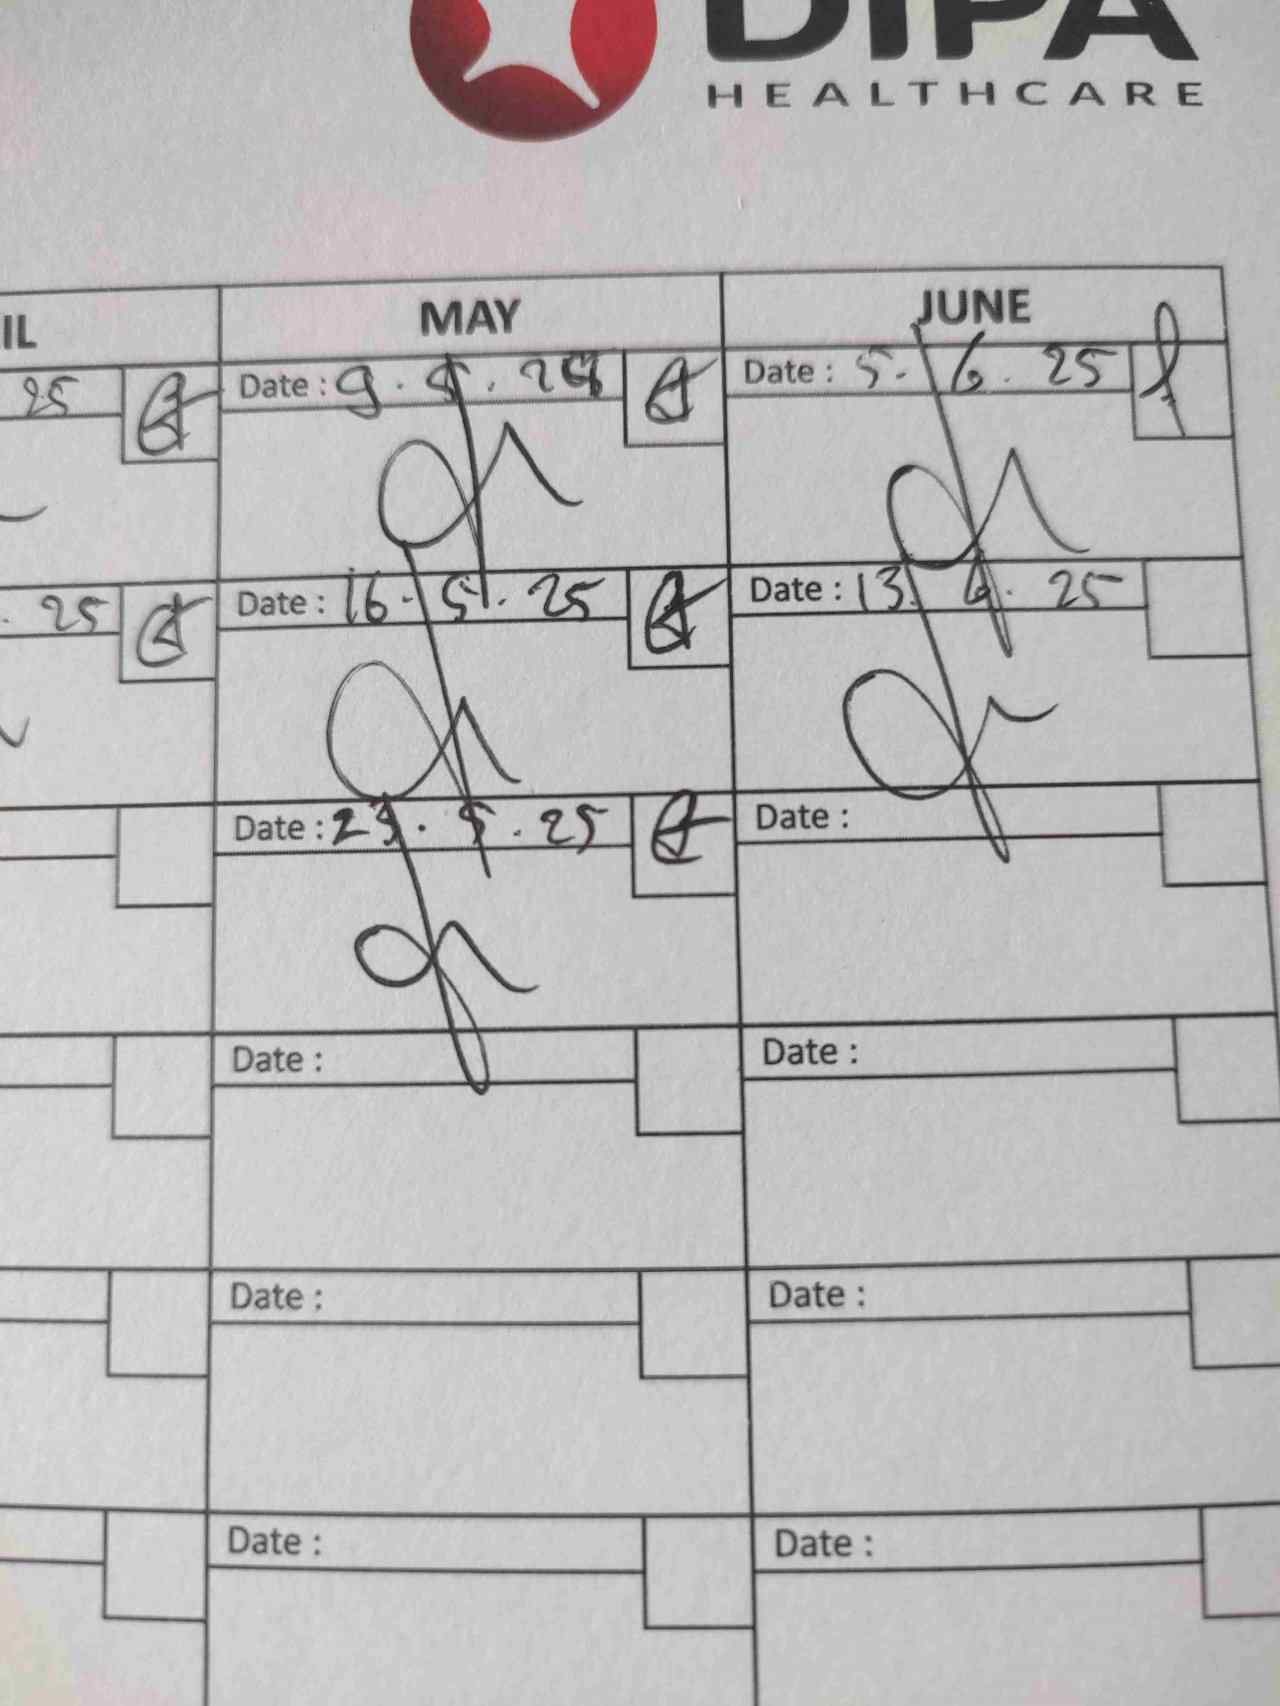 DIPA
HEALTHCARE
IL MAY JUNE
25 Date : 9. 5. 25 Date : 5. 6. 25
. 25 Date : 16. 5. 25 Date : 13. 6. 25
Date : 23. 5. 25 Date :
Date : Date :
Date : Date :
Date : Date :